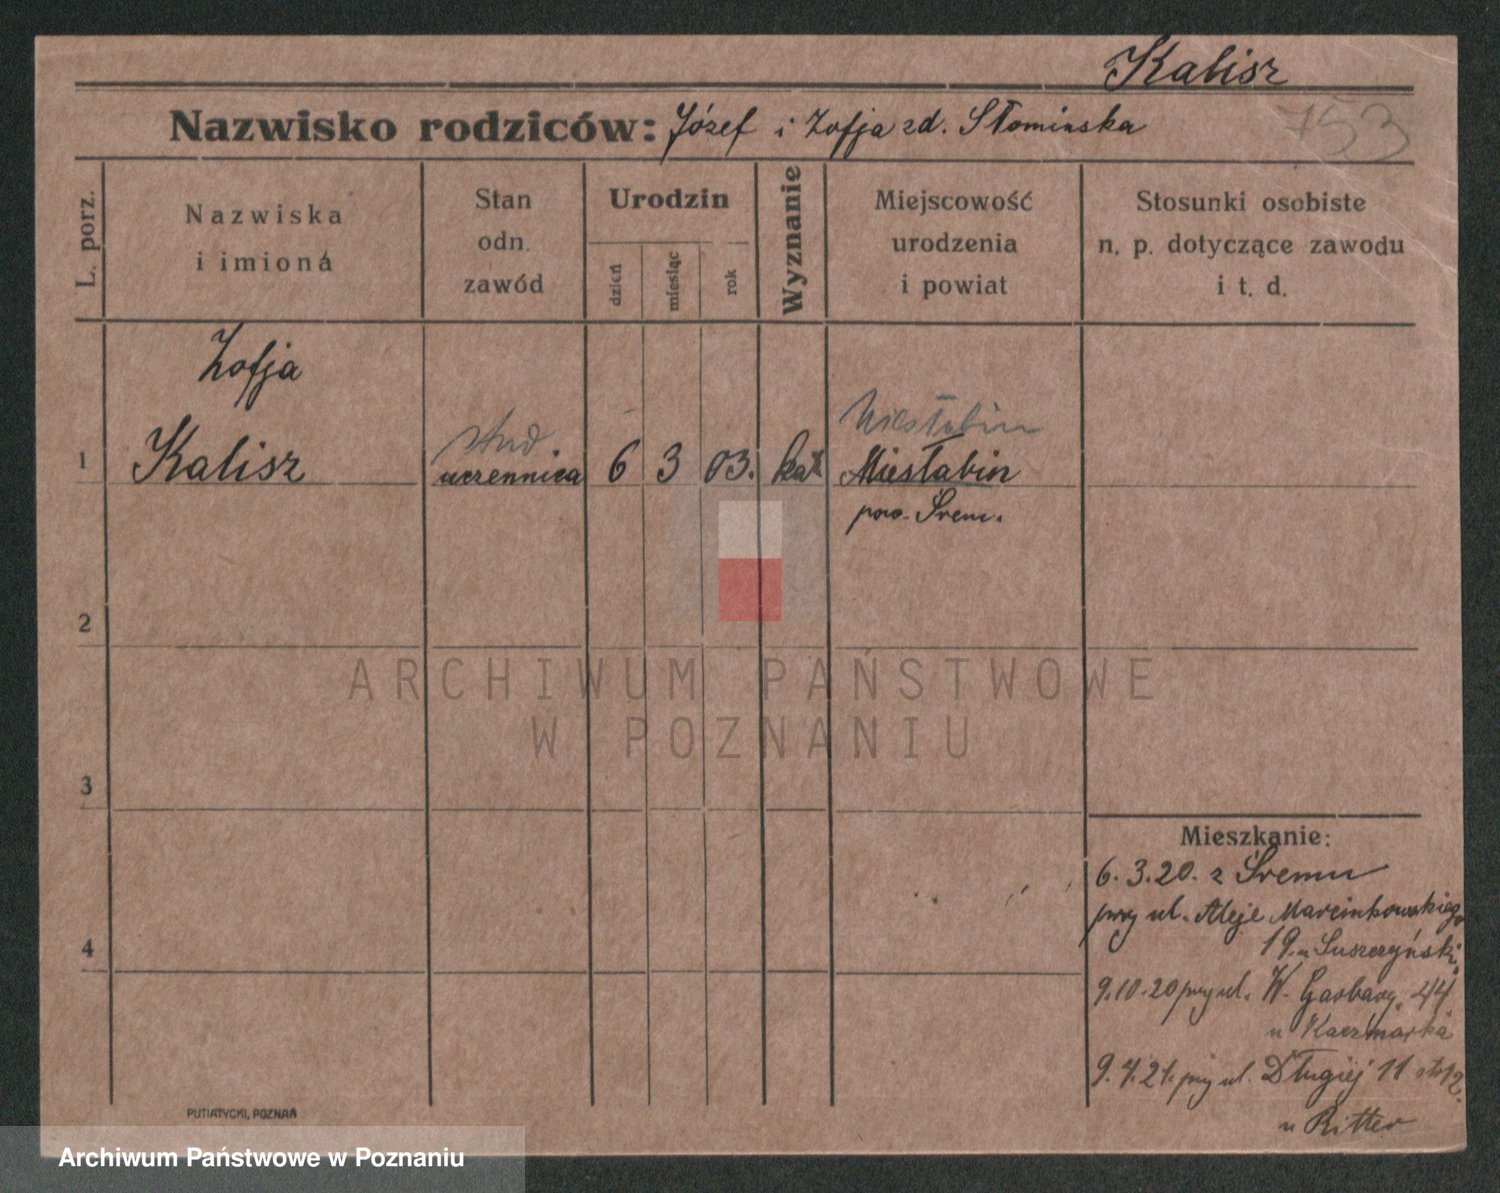 Kalisz
Nazwisko rodziców: Józef i Zofja zd. Słomińska
753
L. porz.
Nazwiska
i imiona
Stan
odn.
zawód
Urodzin
dzień
miesiąc
rok
Wyznanie
Miejscowość
urodzenia
i powiat
Stosunki osobiste
n. p. dotyczące zawodu
i t. d.
Zofja
1 Kalisz
stud
uczennica
6 3 03. kat
Niesłabin
Miesłabin
pow. Śrem.
2
ARCHIWUM PAŃSTWOWE
W POZNANIU
3
4
Mieszkanie:
6.3.20. z Śremu
przy ul. Aleje Marcinkowskiego
19. u Suszczyński
9.10.20 przy ul. W. Garbary 44
u Kaczmarka
9.4.21. przy ul. Długiej 11
u Ritter
PUTIATYCKI, POZNAŃ
Archiwum Państwowe w Poznaniu